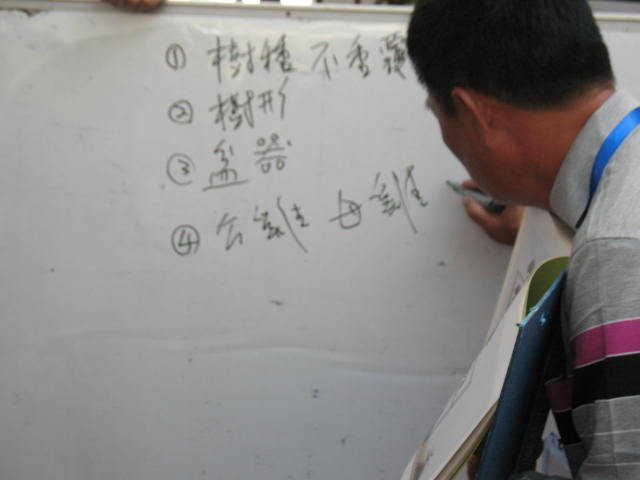 ① 樹種 不重覆
② 樹形
③ 盆器
④ 公雞 母雞